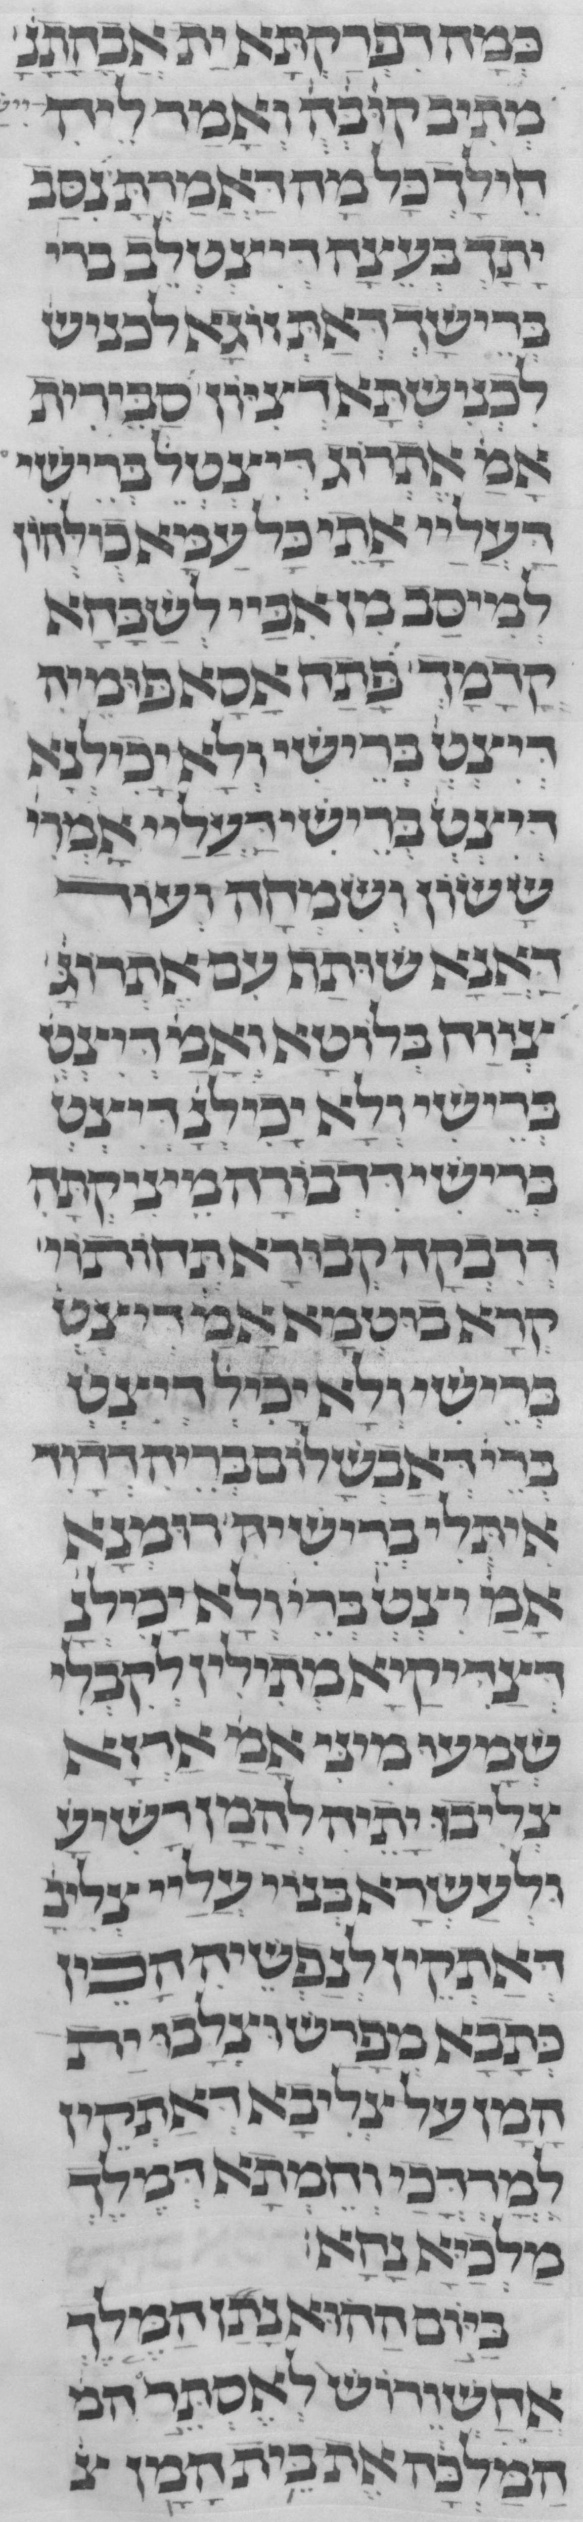 כְּמָה דִפְרַקְתָּא יָת אֲבָהָתָנָ׳
מְתִיב קוּבָּ״ה וְאָמַר לֵיהּ
חֵילָךְ כָל מַה דַּאֲמַרְתְּ נְסַב
יָתָךְ בְּעֵיצָה דִי יִצְטְלֵב ברי
בְּרֵישָׁךְ דְּאַתְּ זוּגָא לכניש
לִכְנִישְׁתָּא דְצִיּוֹן סַבִּירִית
אֲמַ׳ אֶתְרוֹג דִי יִצְטְלֵ׳ בְּרֵישִׁי
דַּעֲלַיי אָתֵי כָּל עַמָּא כֻולְּהוֹן
לְמִיסַּב מִן אִבַּיי לְשַׁבָּחָא
קֳדָמָךְ פְּתַח אָסָא פּוּמֵיהּ
דִי יִצְטְ׳ בְּרֵישִׁי וְלָא יָכִילְנָא
דִי יִצְטְ׳ בְּרֵישִׁי דַּעֲלַיי אָמְרִי
שָׂשׂוֹן וְשִׂמְחָה וְעוֹד
דַּאֲנָא שׁוּתָּף עִם אֶתְרוֹגָ׳
צְוַוח בְּלוּטָא וְאָמַ׳ דִי יִצְטְ׳
בְּרֵישִׁי וְלָא יָכִילְנָ׳ דִי יִצְטְ׳
בְּרֵישִׁי דִּדְבוֹרָה מֵינִיקְתָּהּ
דְּרִבְקָה קְבוּרָא תְּחוֹתוֹי
קְרָא בוּטְמָא אֲמַ׳ דִי יִצְטְ׳
בְּרֵישִׁי וְלָא יָכִיל דִי יִצְטְ׳
בְּרֵי׳ דְּאַבְשָׁלוֹם בְּרֵיהּ דְּדָוִד
אִיתְּלִי בְרֵישֵׁיהּ רוּמָנָא
אֲמַ׳ יִצְטְ׳ בְּרֵי׳ וְלָא יָכִילְנָ׳
דְּצַדִּיקַיָּא מְתִילִין לְקִבְלִי
שְׁמַעוּ מִינִּי אֲמַ׳ אַרְזָא
צְלִיבוּ יָתֵיהּ לְהָמָן רַשִּׁיעָ׳
וְלַעֲשְׂרָא בְּנוֹי עֲלַיי צְלִיבָ׳
דְּאַתְקֵין לְנַפְשֵׁיהּ הָכֵין
כְּתָבָא מְפָרֵשׁ וּצְלָבוּ יָת
הָמָן עַל צְלִיבָא דְּאַתְקֵין
לְמָרְדְּכַי וְחֵמְתָא דְּמֶלֶךְ
מַלְכַּיָּא נָחָא׃
בַּיּוֹם הַהוּא נָתַן הַמֶּלֶךְ
אֲחַשְׁוֵרוֹשׁ לְאֶסְתֵּר המ
הַמַּלְכָּה אֶת בֵּית הָמָן צ׳